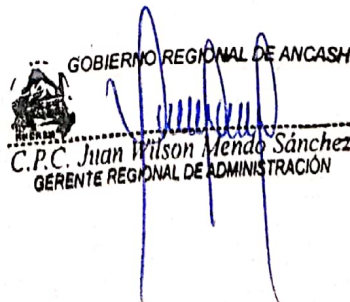 GOBIERNO REGIONAL DE ANCASH
C.P.C. Juan Wilson Mendo Sánchez
GERENTE REGIONAL DE ADMINISTRACIÓN